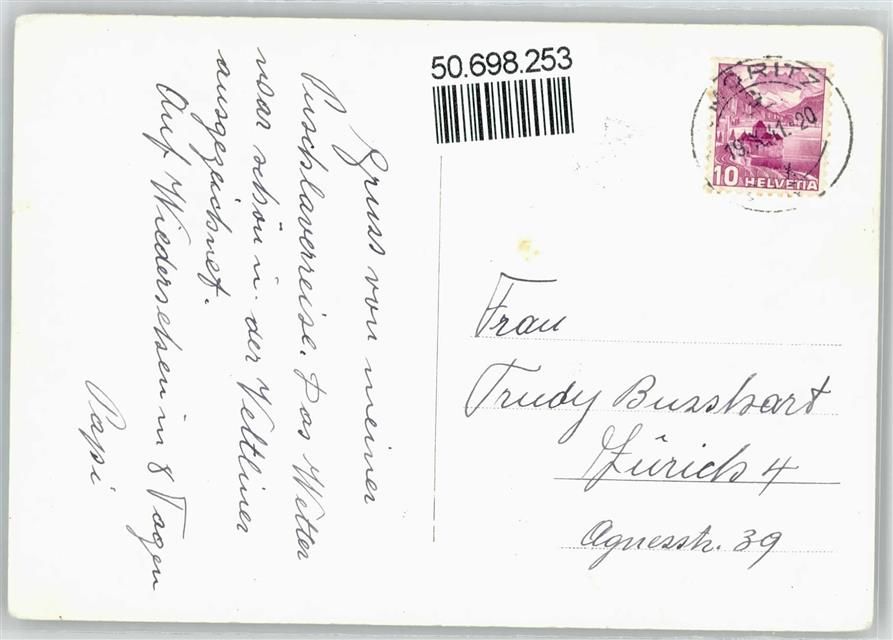 50.698.253
MORITZ
19.X.41.-20
10 HELVETIA
Gruss von meiner
Puschlaverreise. Das Wetter
war schön u. der Veltliner
ausgezeichnet.
Auf Wiedersehen in 8 Tagen
Papi
Frau
Trudy Busshart
Zürich 4
Agnesstr. 39